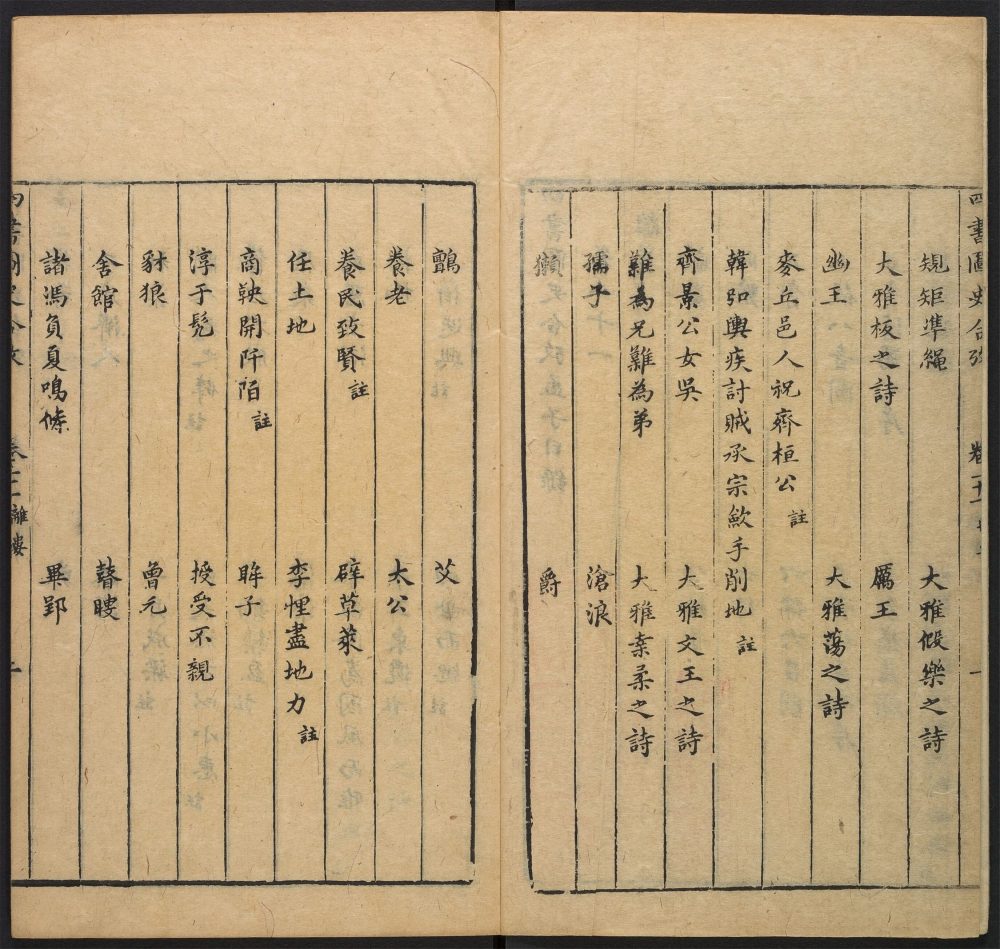 四書圖史合攷 卷二十 一
規矩準繩 大雅假樂之詩
大雅板之詩 厲王
幽王 大雅蕩之詩
麥丘邑人祝齊桓公 註
韓弘輿疾討賊承宗歛手削地 註
齊景公女吳 大雅文王之詩
難為兄難為弟 大雅桑柔之詩
孺子 滄浪
獺 爵
鸇 艾
養老 太公
養民致賢 註 辟草萊
任土地 李悝盡地力 註
商鞅開阡陌 註 眸子
淳于髡 授受不親
豺狼 曾元
舍館 瞽瞍
諸馮負夏鳴條 畢郢
四書圖史合攷 離婁 二